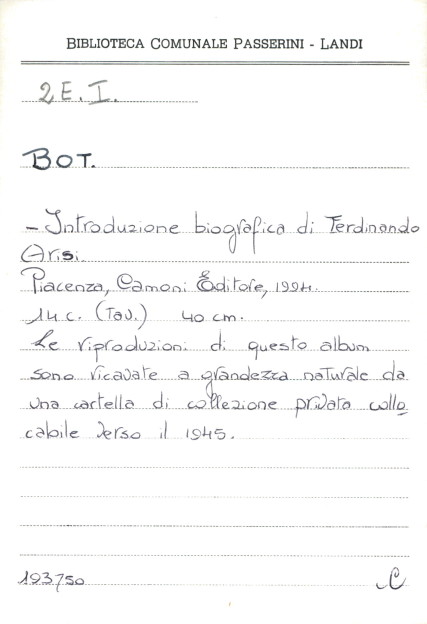 BIBLIOTECA COMUNALE PASSERINI - LANDI
2 E. I.
BOT.
- Introduzione biografica di Ferdinando
Arisi.
Piacenza, Camoni Editore, 1994.
14 c. (Tav.) 40 cm.
Le riproduzioni di questo album
sono ricavate a grandezza naturale da
una cartella di collezione privata collo
cabile verso il 1945.
193750
C